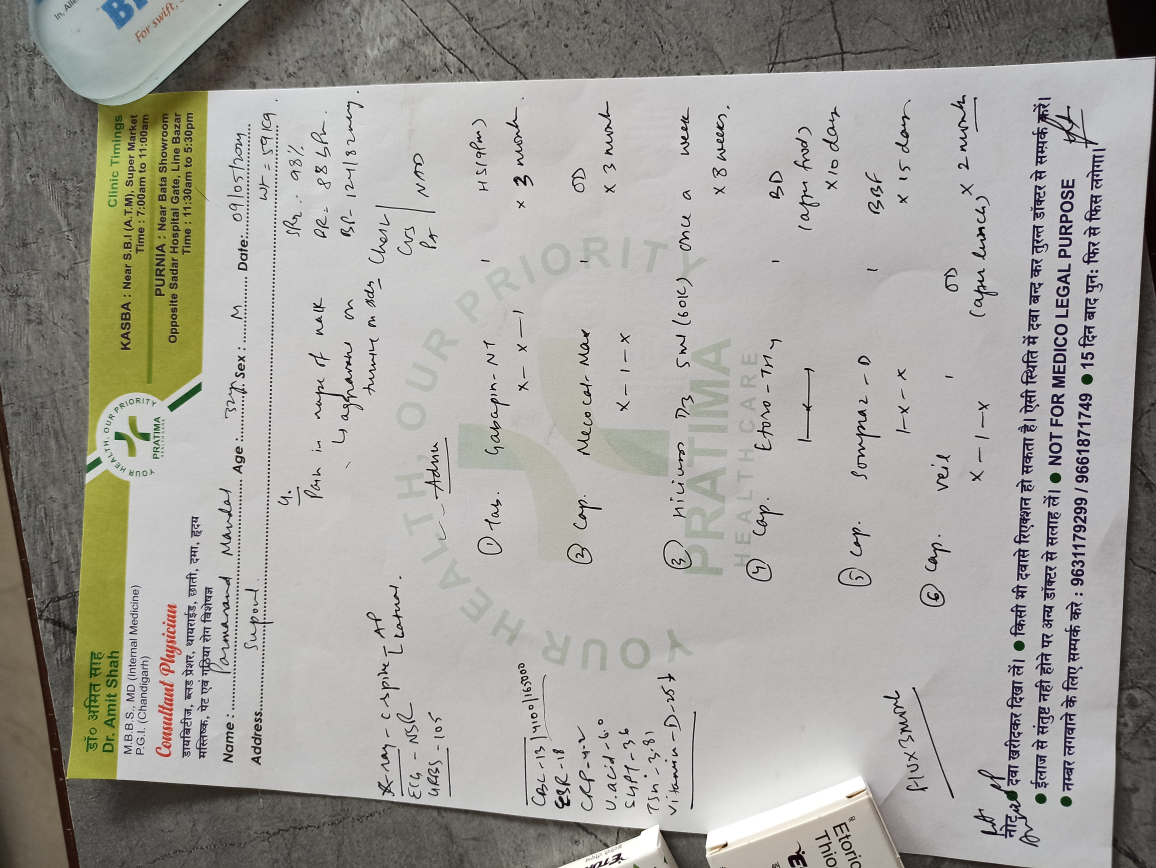 डॉ० अमित साह
Dr. Amit Shah
M.B.B.S., MD (Internal Medicine)
P.G.I. (Chandigarh)
Consultant Physician
डायबिटीज, ब्लड प्रेशर, थायराईड, छाती, दमा, हृदय
मस्तिष्क, पेट एवं गठिया रोग विशेषज्ञ
YOUR HEALTH, OUR PRIORITY
PRATIMA
HEALTHCARE
Clinic Timings
KASBA : Near S.B.I (A.T.M), Super Market
Time : 7:00am to 11:00am
PURNIA : Near Bata Showroom
Opposite Sadar Hospital Gate, Line Bazar
Time : 11:30am to 5:30pm
Name : Parmanand Mandal Age : Sex : M Date:
Address Supoul
WT = 59 Kg
Pain in nape of neck
↳ aggravated on
turning on sides
SPO2 : 98%
PR = 88 bpm
BP = 124/82 mmHg
Chest
CVS
PA
NAD
X-ray - C-spine - AP
Lateral.
ECG - NSR
URBS - 105
CBC - 13/4100/165000
ESR - 18
CRP - 4.2
U. acid - 6.0
SGPT - 36
TSH - 3.81
Vitamin - D - 25↓
Adv
① Tab. Gabapin - NT HS (9pm)
x - x - 1 x 3 month.
② Cap. Mecocal-Max OD
x - 1 - x x 3 month
③ D3 5ml (60K) once a week
x 8 weeks.
④ Cap. Etoro-Thy BD
1 - x - 1 (after food)
x 10 days
⑤ Cap. Sompraz - D BBF
1 - x - x x 15 days
⑥ Cap. veil OD
x - 1 - x (after lunch) x 2 month
YOUR HEALTH, OUR PRIORITY
PRATIMA
HEALTH CARE
नोट : दवा खरीदकर दिखा लें। ● किसी भी दवासे रिएक्शन हो सकता है। ऐसी स्थिति में दवा बन्द कर तुरन्त डॉक्टर से सम्पर्क करें।
● ईलाज से संतुष्ट नही होने पर अन्य डॉक्टर से सलाह लें। ● NOT FOR MEDICO LEGAL PURPOSE
● नम्बर लगवाने के लिए सम्पर्क करे : 9631179299 / 9661871749 ● 15 दिन बाद पुनः फिर से फिस लगेगा।
For swift,
Thio